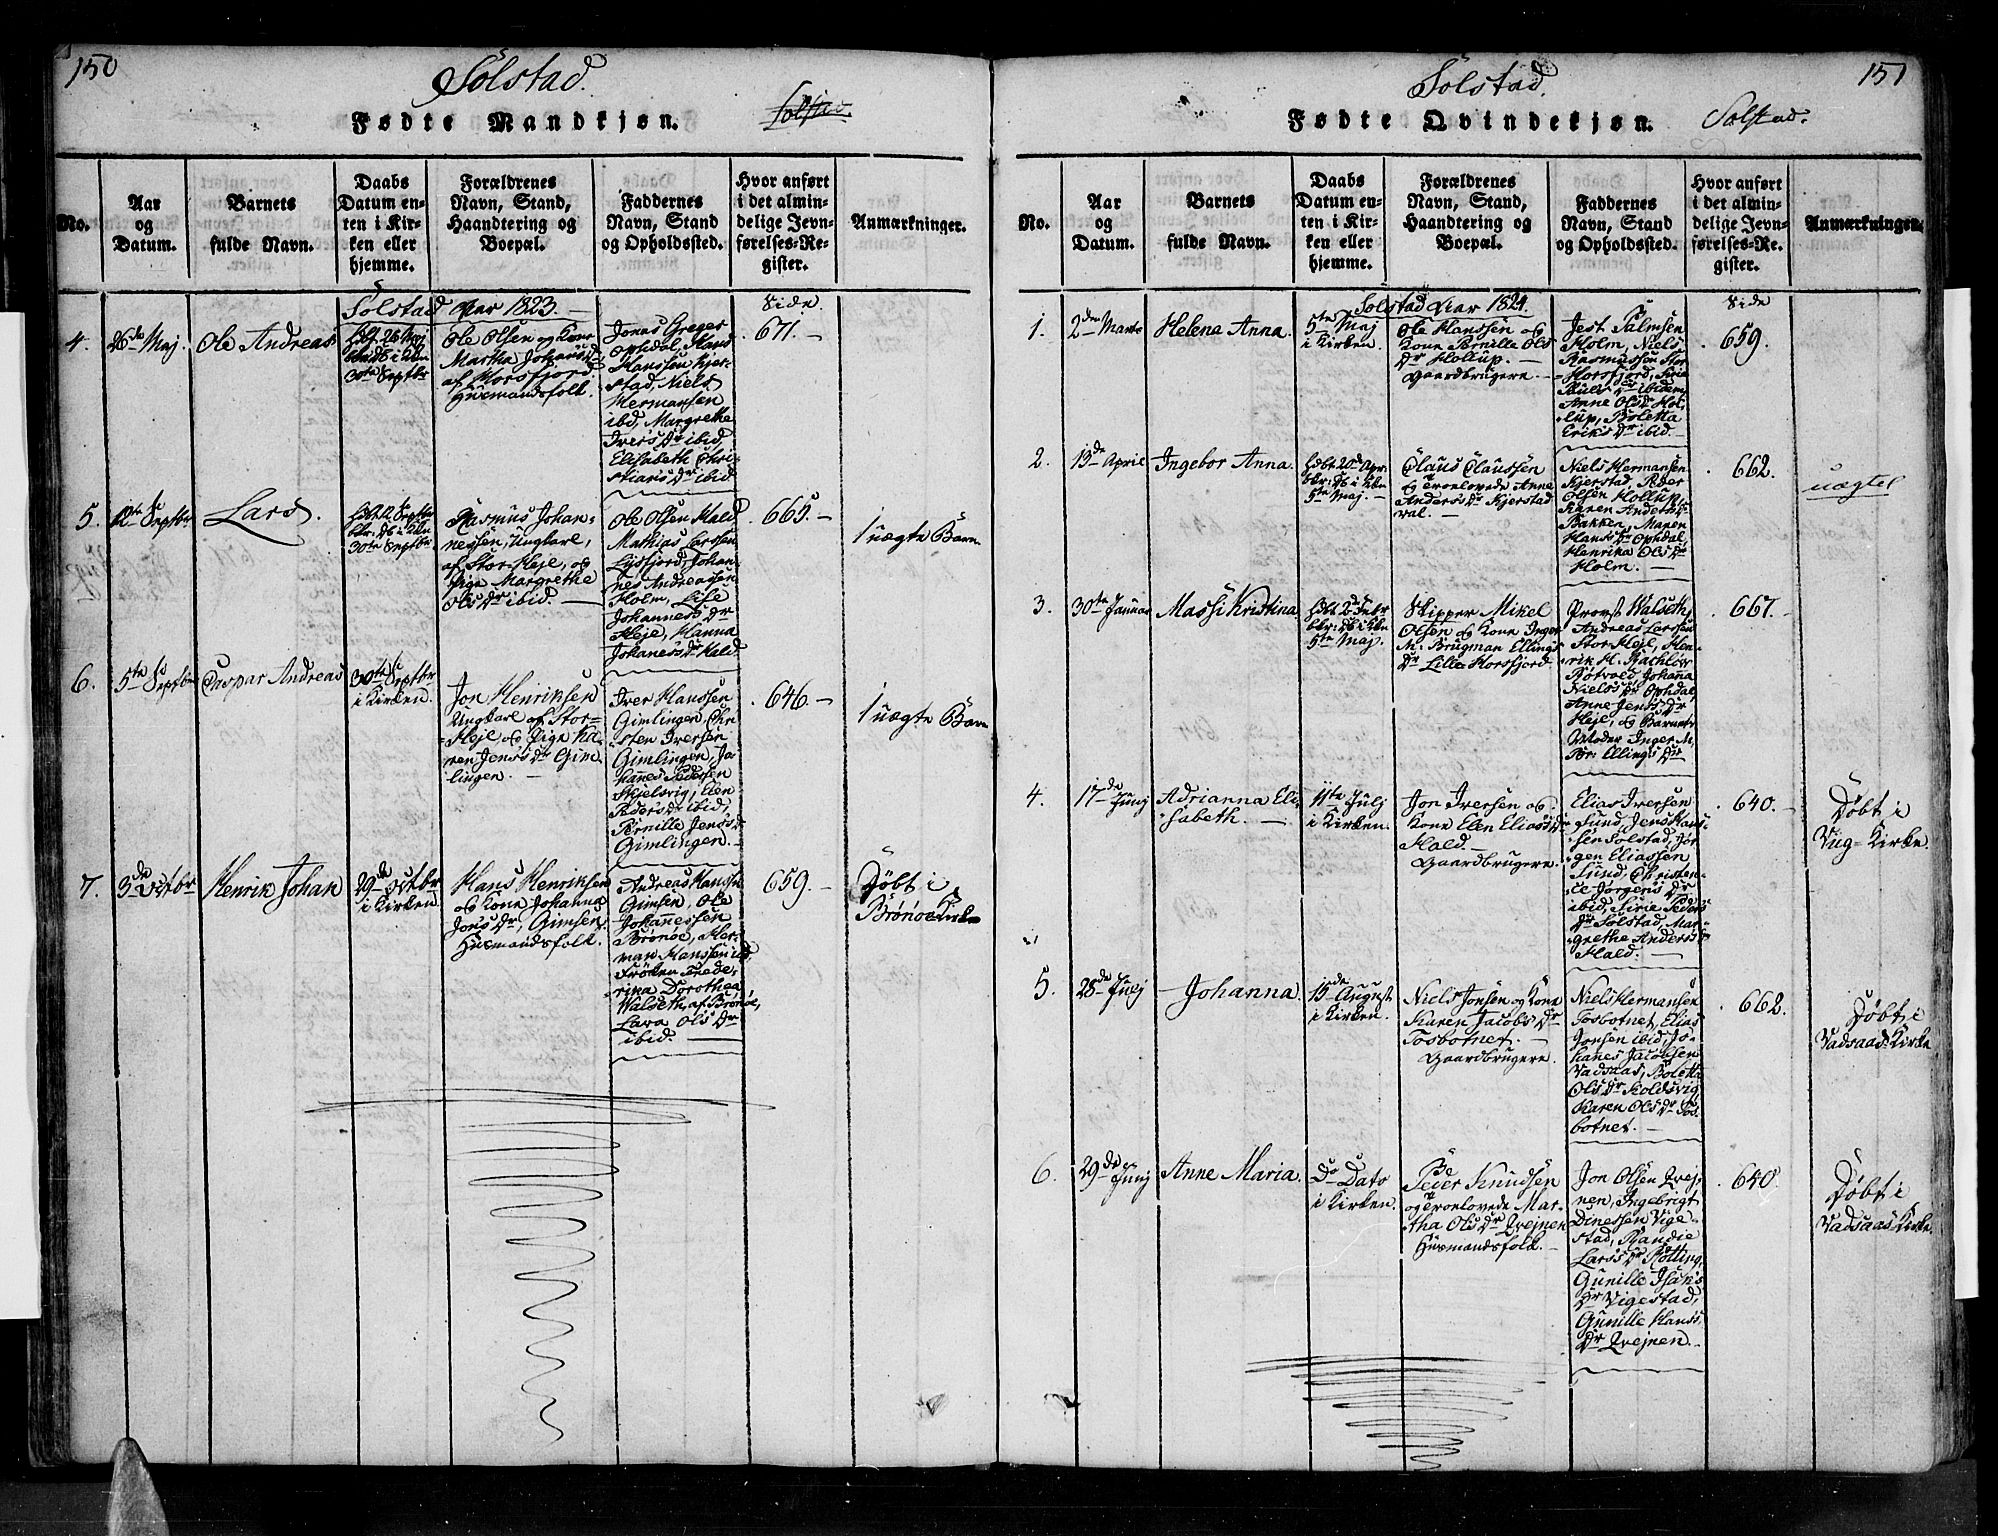 150
Solstad.
Fødte Mandkjøn.
Solstad.
No.
Aar
og
Datum.
Barnets
fulde Navn.
Daabs
Datum en-
ten i Kir-
ken eller
hjemme.
Forældrenes
Navn, Stand,
Haandtering og
Boepæl.
Faddernes
Navn, Stand
og Opholdssted.
Hvor anført
i det almin-
delige Jevn-
førelses-Re-
gister.
Anmærkninger.
Solstad Aar 1823.
Side.
4.
26de Maj.
Ole Andreas
30te Septbr
Ole Olsen og Kone
Martha Johans Dr
af Horsfjord
Huusmandsfolk.
Jonas Greger
Ophdal, Hans
Hanssen Kjer-
stad, Niels
Hermansen
ibd, Margrethe
Ivers Dr ibid,
Elisabeth Chri-
stians Dr ibid
671.
5.
12te Septbr
Lars.
30te Septbr
Rasmus Johan-
nessen, Ungkarl,
af Stor-Heje, og
Pige Margrethe
Ols Dr ibid.
Ole Olsen Hald
Mathias Larssen
Lysfjord, Johan-
nes Andreassen
Holm, Lise
Johannes Dr
Heje, Hanna
Johanes Dr Hald
665.
uægte Barn
6.
5te Septbr
Caspar Andreas
30te Septbr
i Kirken.
Jon Henriksen
Ungkarl af Stor-
Heje og Pige Ka-
ren Jens Dr Gim-
lingen.
Iver Hanssen
Gimlingen, Chri-
sten Iversen
Gimlingen, Jo-
hannes Pedersen
Skjelsvig, Elen
Peders Dr ibid,
Pernille Jens Dr
Gimlingen.
646.
uægte Barn
7.
3de Octbr
Henrik Johan
29de Octbr
i Kirken.
Hans Henriksen
og Kone Johanna
Jons Dr, Gimsen.
Huusmandsfolk.
Andreas Hanssen
Gimsen, Ole
Johannessen
Brønøe, Her-
man Hanssen ibd,
Frøken Frede-
rica Dorothea
Walseth, af Brønøe,
Lava Ols Dr
ibid.
659.
Døbt i
Brønøe Kirke
151
Solstad.
Fødte Qvindekjøn.
Solstad.
No.
Aar
og
Datum.
Barnets
fulde Navn.
Daabs
Datum en-
ten i Kir-
ken eller
hjemme.
Forældrenes
Navn, Stand,
Haandtering og
Boepæl.
Faddernes
Navn, Stand
og Opholdssted.
Hvor anført
i det almin-
delige Jevn-
førelses-Re-
gister.
Anmærkninger.
Solstad Aar 1824.
Side
1.
2den Marts
Helena Anna.
5te Maj
i Kirken.
Ole Hanssen og
Kone Pernille Ols
Dr Hollup.
Gaardbrugere.
Jest. Palmsen
Holm, Niels
Rasmussen Stor
Horsfjord, Siri
Pauls Dr ibidem,
Anne Ols Dr Hol-
lup, Boletta
Eriks Dr ibid.
659.
2.
13de April
Ingebor Anna.
5te Maj.
Claus Claussen
og Trolovede Anne
Anders Dr Kjerstad
val.
Niels Hermansen
Kjerstad, Peder
Olsen Hollup,
Karen Anders Dr
Bakken, Maren
Hans Dr Ophdal,
Henrika Ols Dr
Holm.
662.
uægte
3.
30te Januar
Massi Kristina
5te Maj.
Skipper Mikel
Olsen og Kone Inger
M. Brugman Ellings
Dr Lille Horsfjord.
Provst Walseth,
Andreas Larssen
Stor Heje, Hen-
rik H. Rachlow
Rotvold, Johana
Niels Dr Ophdal,
Anne Jens Dr
Heje, og Barnets
Moder Inger M.
Br. Ellings Dr
667.
4.
17de Junj
Adrianna Eli-
sabeth.
11te Julj
i Kirken.
Jon Iversen og
Kone Elen Elias Dr
Hald.
Gaardbrugere.
Elias Iversen
Sund, Jens Hans-
sen Solstad, Jør-
gen Eliassen
Sund, Christen-
ce Jørgens Dr
ibid, Sirie Peders
Dr Solstad, Mar-
grethe Anders Dr
Hald.
640.
Døbt i
Vug-Kirke.
5.
28de Julj
Johanna.
15de August
i Kirken.
Niels Jonsen og Kone
Karen Jacobs Dr
Tosbotnet.
Gaardbrugere.
Niels Hermansen
Tosbotnet, Elias
Jonsen ibid, Jo-
hanes Jacobsen
Vadsaas, Boletta
Ols Dr Koldsvig
Karen Ols Dr Tos-
botnet.
662.
Døbt i
Vadsaas Kirke
6.
29de Junj
Anne Maria.
Do Dato
i Kirken.
Peder Knudsen
og Troelovede Mar-
tha Ols Dr Qvejnen
Huusmandsfolk.
Jon Olsen Qvej-
nen, Ingebrigt
Dinessen Vige-
stad, Randie
Lars Dr Røtting,
Gunille Isaks
Dr Vigestad,
Gunille Hans
Dr Qvejnen.
640.
Døbt i
Vadsaas-Kirke